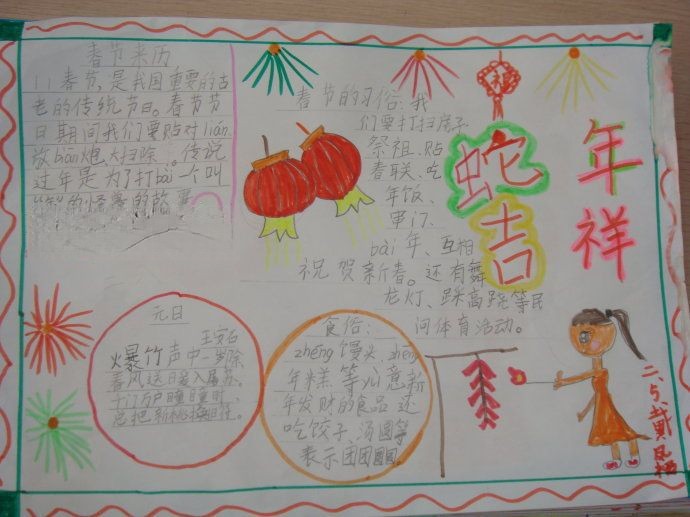 春节来历
春节,是我国重要的古
老的传统节日。春节节
日期间我们要贴对lián
放bān炮大扫除。传说
过年是为了打bài一个叫
"年"的怪兽的故事
春节的习俗:我
们要打扫房子
祭祖、贴
春联、吃
年饭、
串门、
bài年、互相
祝贺新春。还有舞
龙灯、踩高跷等民
间体育活动。
蛇年
吉祥
元日
王安石
爆竹声中一岁除
春风送日暖入屠苏。
千门万户曈曈时,
总把新桃换旧符。
食俗:
zhēng馒头、zhēng
年糕等心意新
年发财的食品 还
吃饺子、汤圆等
表示团团圆圆。
二.5.戴